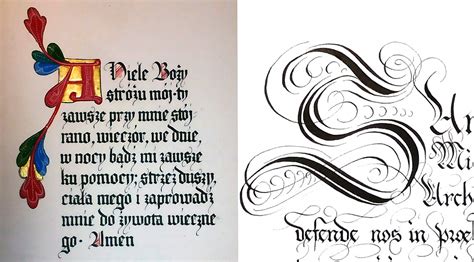 Aniele Boży
stróżu mój-ty
zawsze przy mnie stój
rano, wieczór, we dnie,
w nocy bądź mi zawsze
ku pomocy, strzeż duszy,
ciała mego i zaprowadź
mnie do żywota wieczne
go · Amen
S
Mi
Arch
defende nos in proel